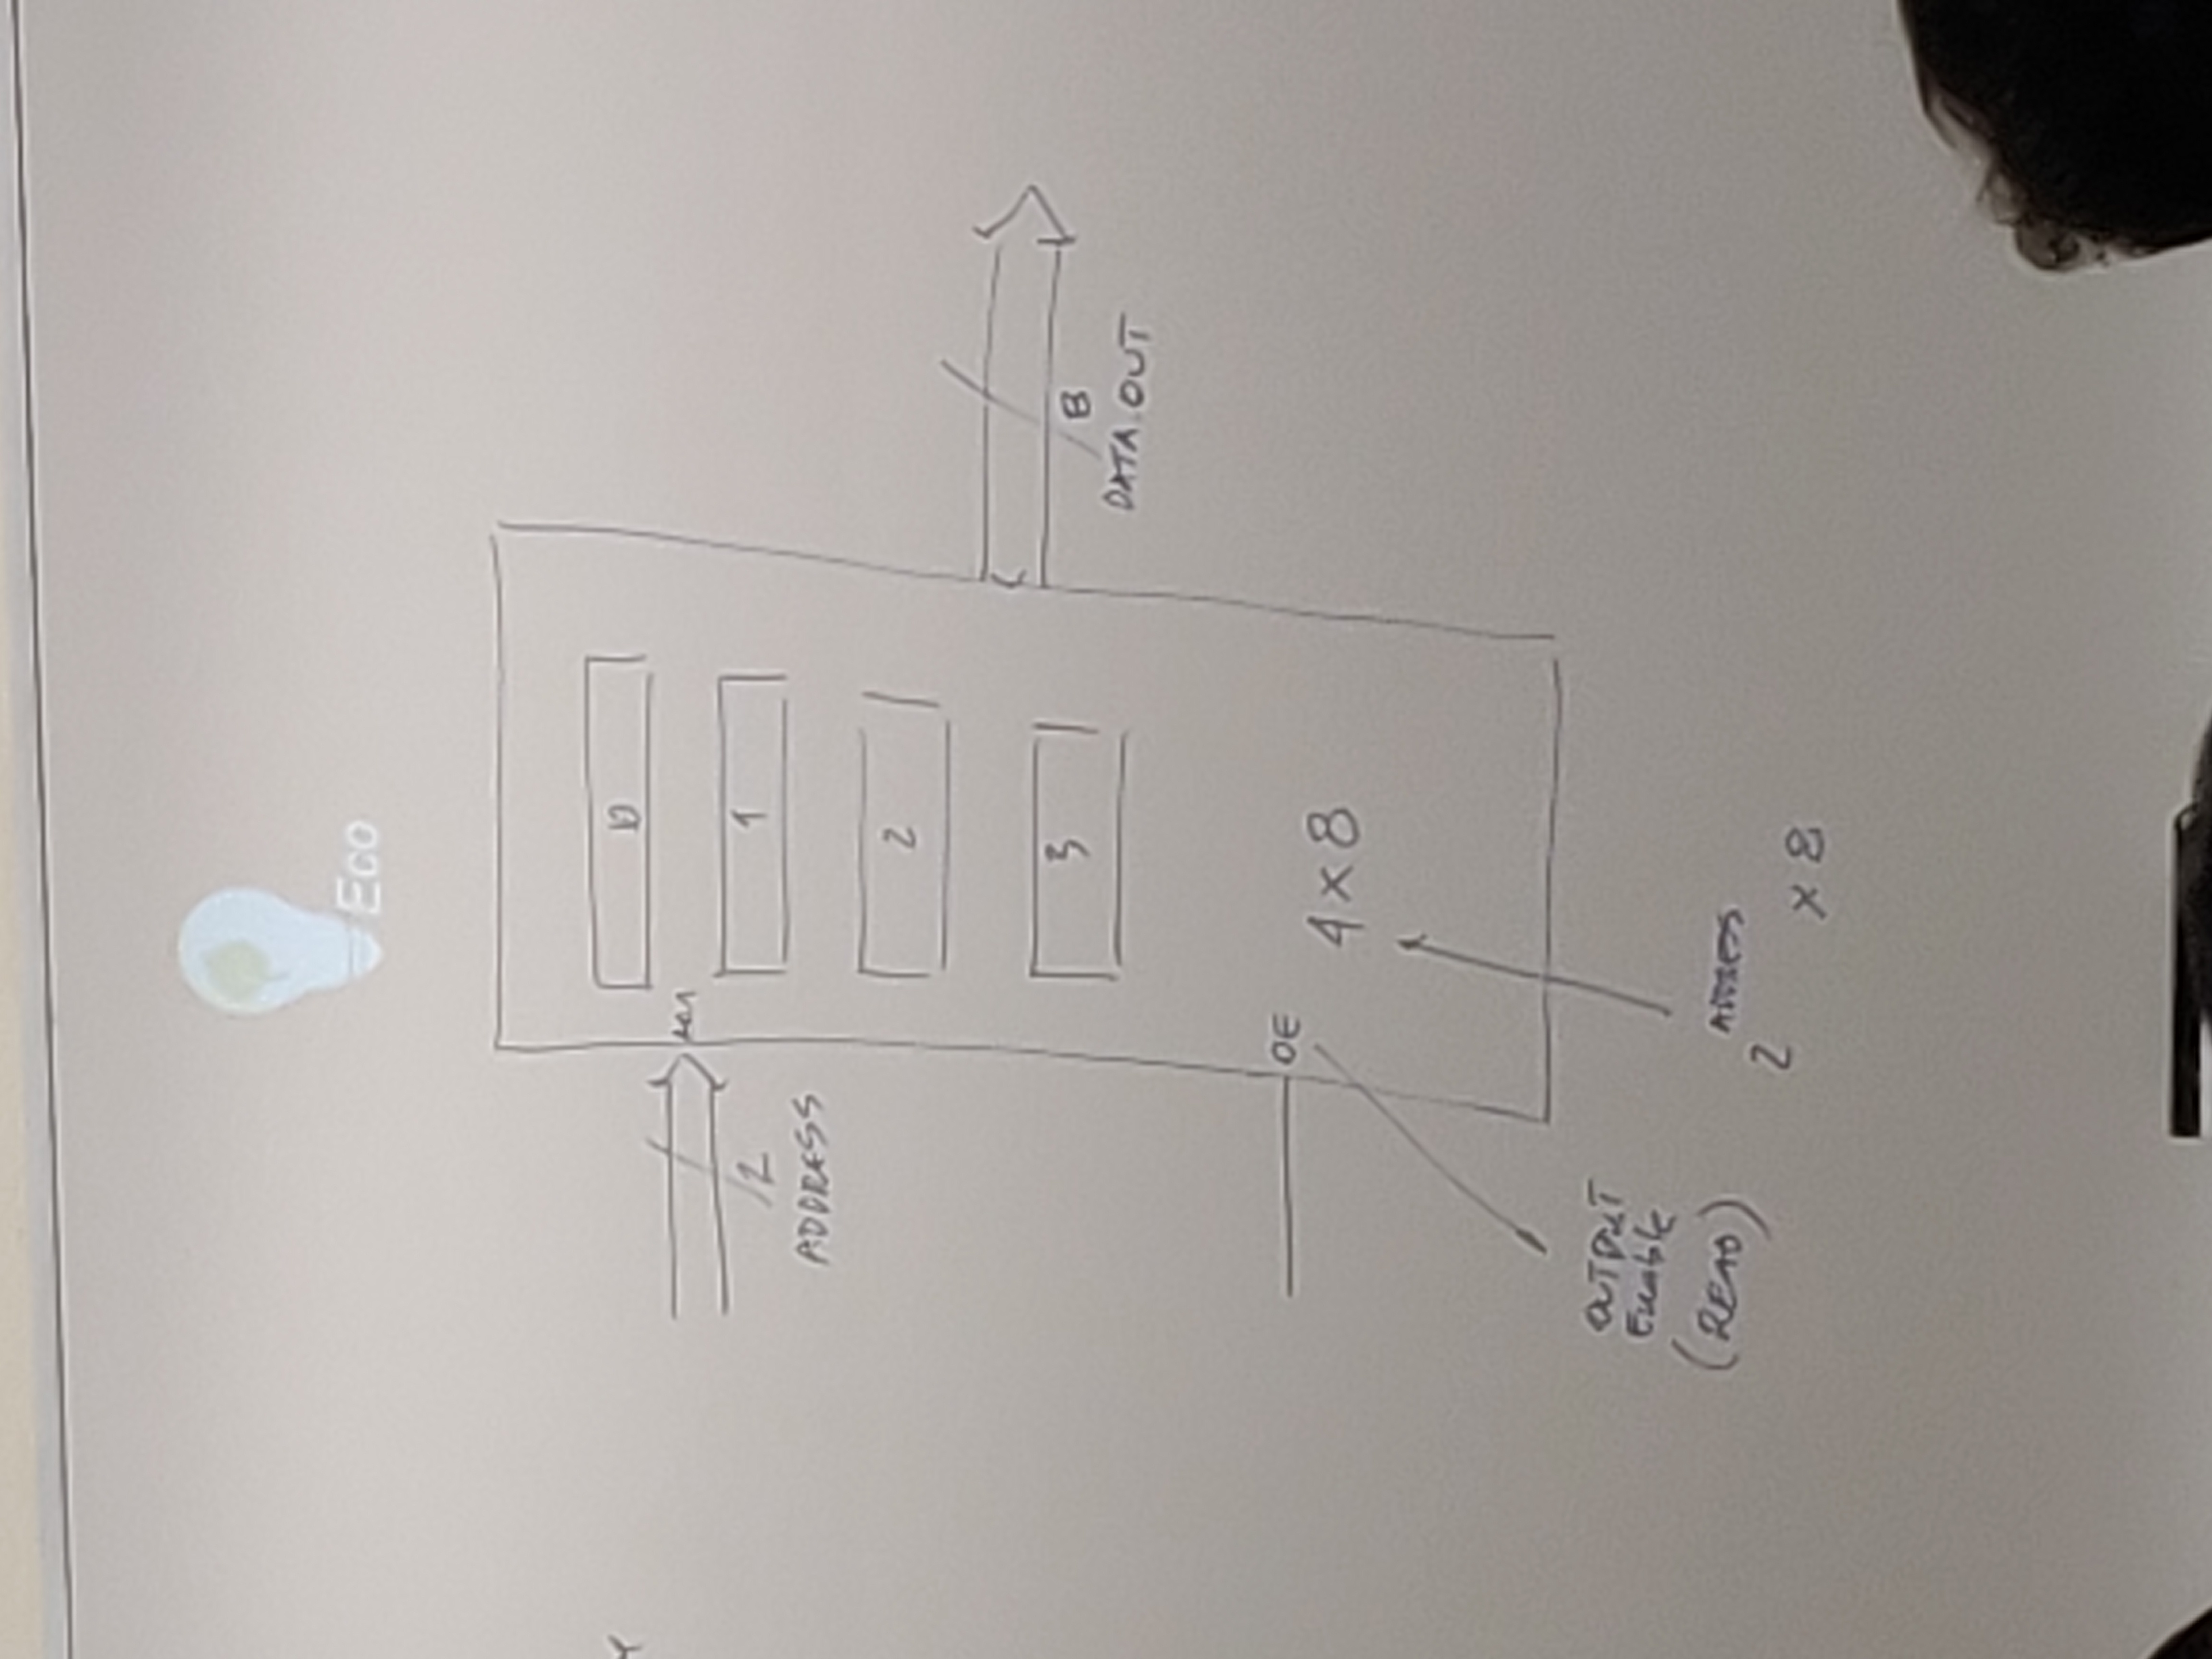 Eco
0
2
ADDRESS
1
2
3
8
DATA.OUT
OE
4 x 8
OUTPUT
Enable
(READ)
ADDRESS
2
x 8